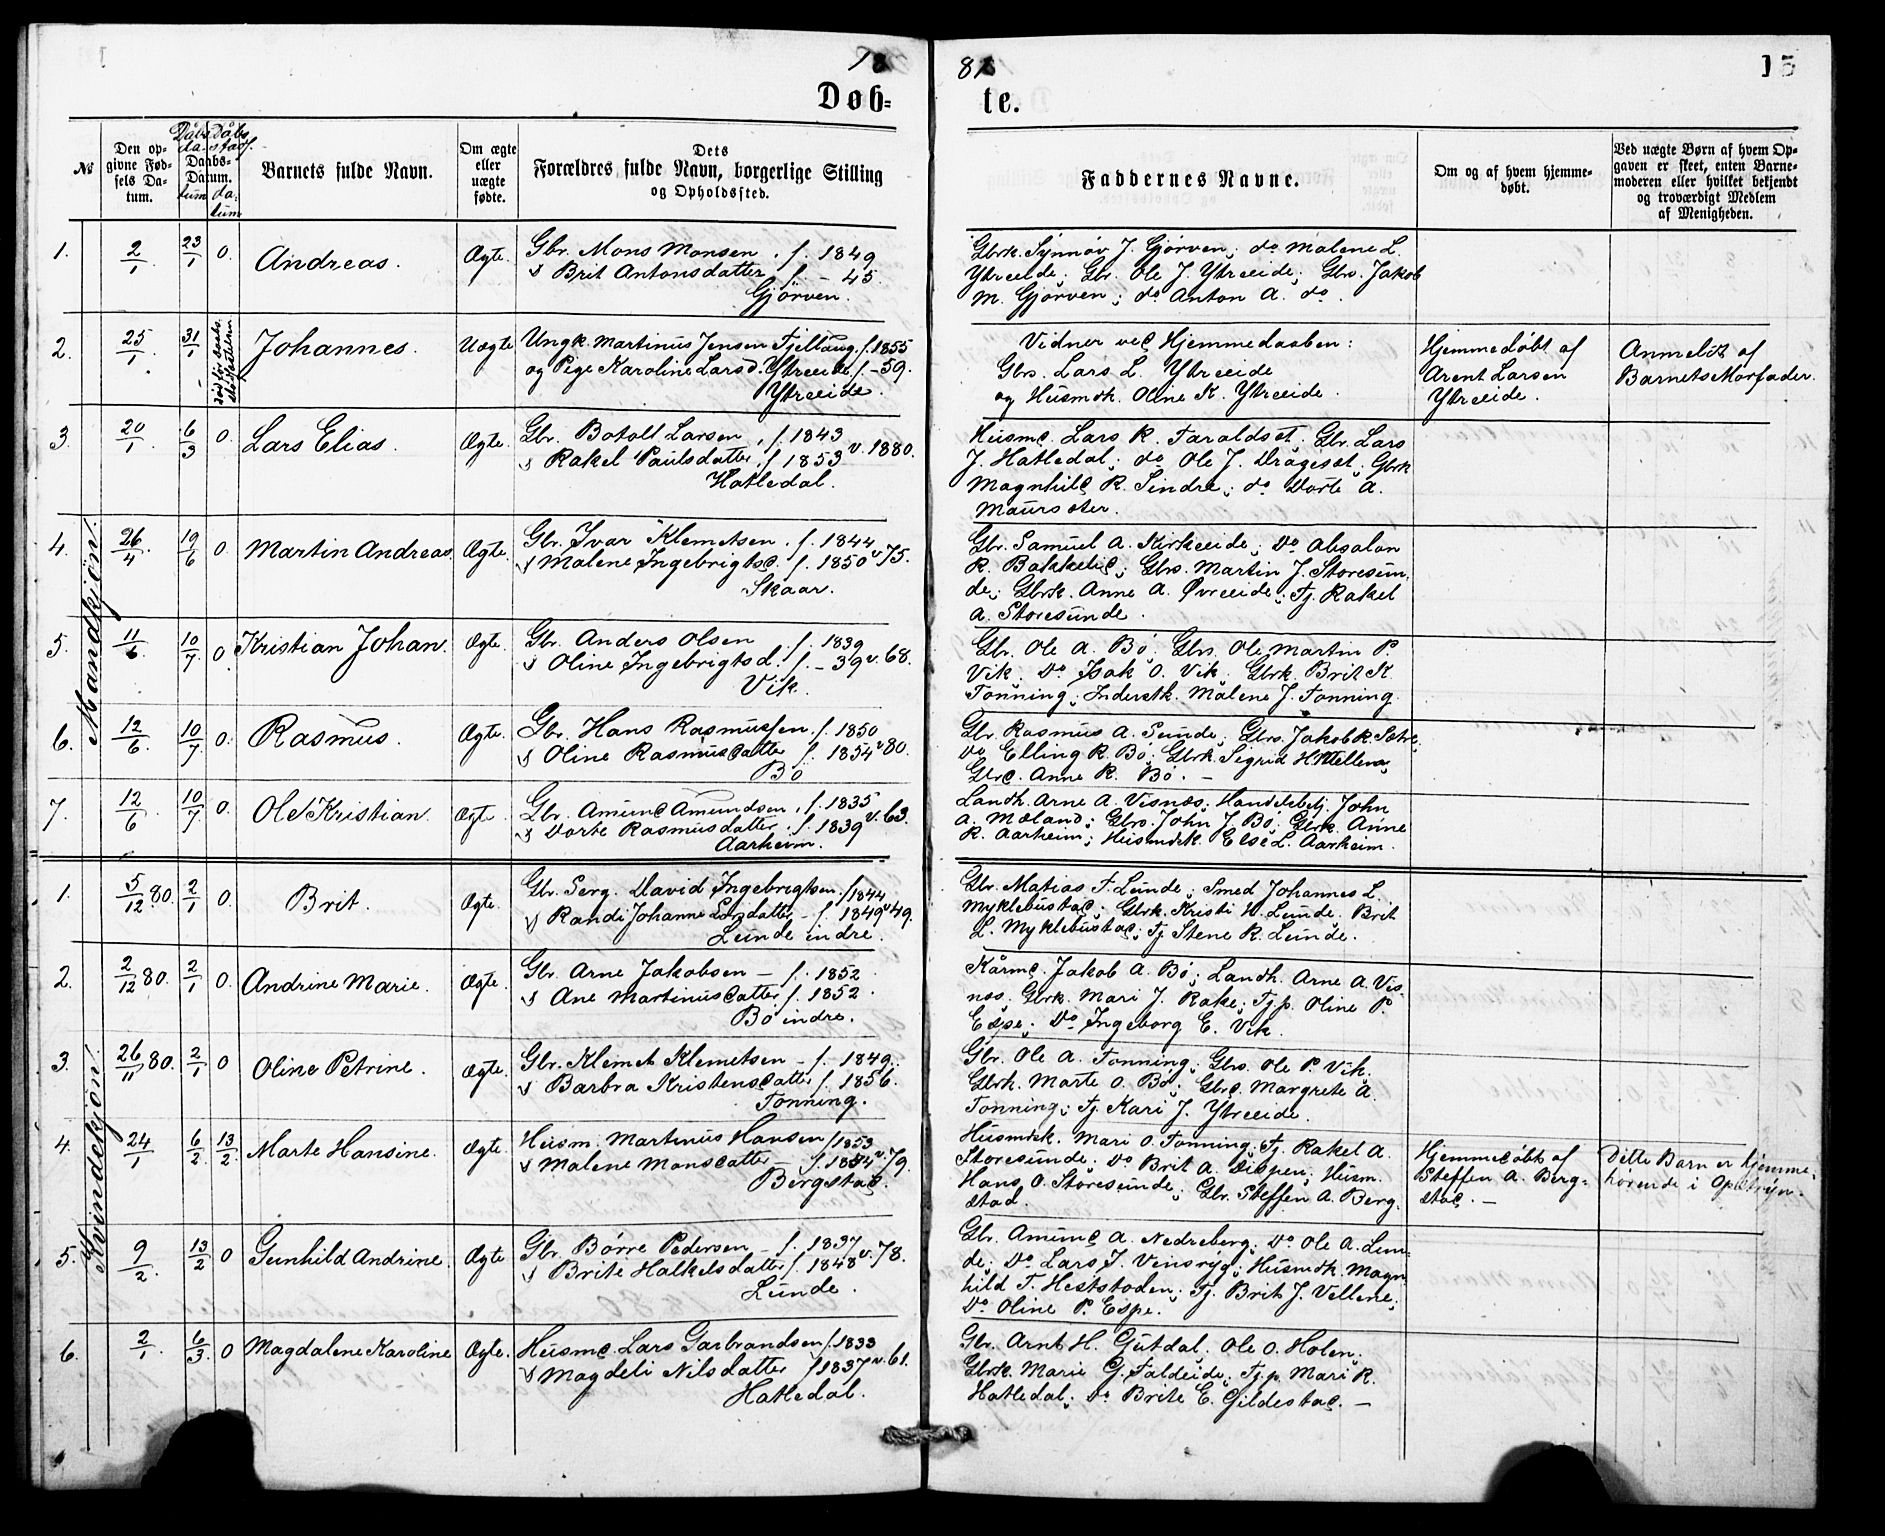 18
81
15
Døb-
te.
№
Den op-
givne Fød-
sels Da-
tum.
Daabs-
Datum.
Dåbs
da-
tum
Dåbs
stadf.
da-
tum
Barnets fulde Navn.
Om ægte
eller
uægte
fødte.
Dets
Forældres fulde Navn, borgerlige Stilling
og Opholdssted.
Faddernes Navne.
Om og af hvem hjemme-
døbt.
Ved uægte Børn af hvem Op-
gaven er skeet, enten Barne-
moderen eller hvilket bekjendt
og troværdigt Medlem
af Menigheden.
Mandkjön.
1. 2/1. 23/1 0. Andreas. Ægte.
Gbr. Mons Monsen. f. 1849
Brit Antonsdatter f. - 45.
Gjörven.
Gbrk. Synnöv J. Gjörven; do Malene L.
Ytreeide; Gbr. Ole J. Ytreeide; Gbrs. Jakob
M. Gjörven; do Anton A. do.
2. 25/1. 31/1 Johannes. Uægte
Ungk. Martinus Jensen Fjellaug. f. 1855
og Pige Karoline Larsd. Ytreeide f. - 59.
Ytreeide.
Vidner ved Hjemmedaaben:
Gbrs. Lars L. Ytreeide
og Husmdk. Oline K. Ytreeide.
Hjemmedöbt af
Arent Larsen
Ytreeide.
Anmeldt af
Barnets Morfader.
3. 20/1. 6/3 0. Lars Elias. Ægte.
Gbr. Botolf Larsen, f. 1843
Rakel Paulsdatter f. 1853 v. 1880.
Hatledal.
Husmd. Lars R. Taraldset. Gbr. Lars
J. Hatledal; do Ole J. Drageset; Gbrk
Magnhild R. Sindre; do Dorte A.
Maursæter.
4. 26/4. 19/6 0. Martin Andreas. Ægte.
Gbr. Ivar Klemetsen. f. 1844
Malene Ingebrigtsd. f. 1850 v. 75.
Skaar.
Gbr. Samuel A. Kirkeeide; Do Absalon
R. Bakkelid; Gbrs. Martin J. Storesun-
de; Gbrk. Anne A. Øvreeide; Tj. Rakel
A. Storesunde.
5. 11/6. 10/7 0. Kristian Johan. Ægte.
Gbr. Anders Olsen f. 1839
Oline Ingebrigtsd. f. - 39 v. 68.
Vik.
Gbr. Ole A. Bö; Gbrs. Ole Martin P.
Vik; Do Isak O. Vik; Gbrk. Brit K.
Tonning; Inderstk. Malene J. Tonning.
6. 12/6. 10/7 0. Rasmus. Ægte.
Gbr. Hans Rasmussen f. 1850
Oline Rasmusdatter f. 1854 v 80.
Bö
Gbr. Rasmus A. Sunde; Gbrs. Jakob K. Sætre;
do Elling R. Bö; Gbrk. Sigrid H. Vellene;
Gbrd. Anne R. Bö. -
7. 12/6. 10/7 0. Ole Kristian. Ægte.
Gbr. Amund Amundsen. f. 1835
Dorte Rasmusdatter. f. 1839 v. 63.
Aarheim.
Landh. Arne A. Visnæs; Handelsbetj. John
A. Mæland; Gbrs. John J. Bö; Gbrk. Anne
R. Aarheim; Husmdsk. Else L. Aarheim.
Kvindekjön.
1. 5/12 80. 2/1 0. Brit. Ægte.
Gbr. Serg. David Ingebrigtsen. f 1844
Randi Johanne Larsdatter f. 1849 v 49.
Lunde indre.
Gbr. Matias T. Lunde; Smed Johannes L.
Myklebustad; Gbrk. Kristi W. Lunde. Brit
L. Myklebustad; Tj Stene R. Lunde.
2. 2/12 80. 2/1 0. Andrine Marie. Ægte.
Gbr. Arne Jakobsen - f. 1852
Ane Martinusdatter f. 1852.
Bö indre.
Kårmd. Jakob A. Bö; Landh. Arne A. Vis-
næs. Gbrk. Mari J. Rake; Tjp. Oline P.
Espe; Do Ingeborg E. Vik.
3. 26/11 80. 2/1 0 Oline Petrine. Ægte.
Gbr. Klemet Klemetsen - f. 1849.
Barbra Kristensdatter f. 1856.
Tonning.
Gbr. Ole A. Tonning; Gbrs. Ole P. Vik.
Gbrk. Marte O. Bö; Gbrd. Margrete A.
Tonning; Tj. Kari J. Ytreeide.
4. 24/1 6/2. 13/2. Marte Hansine. Ægte.
Husm. Martinus Hansen f 1853
Malene Monsdatter - f. 1854 v. 79.
Bergstad.
Husmdsk. Mari O. Tonning; Tj. Rakel A.
Storesunde; Do Brit A. Dispen; Husm.
Hans O. Storesunde; Gbr. Steffen A. Berg-
stad.
Hjemmedöbt af
Steffen A. Berg-
stad. -
Dette Barn er hjemme-
hörende i Opstryn.
5. 9/2. 13/2 0 Gunhild Andrine. Ægte
Gbr. Börre Pedersen - f. 1837
Brite Halkelsdatter f. 1848 v. 78.
Lunde.
Gbr. Amund A. Nedreberg; Do Ole A. Lun-
de; Do Lars J. Vinsrygg; Husmdk. Magn-
hild T. Heststoden; Tj. Brit J. Vellene;
Do Oline P. Espe.
6. 2/1. 6/3. 0 Magdalene Karoline Ægte.
Husmd. Lars Garbrandsen f. 1833
Magdeli Nilsdatter f 1837 v. 61.
Hatledal.
Gbr. Arnt H. Gutdal; Ole O. Holen;
Gbrk. Marie G. Faldeide; Tjp. Mari R.
Hatledal; Do Brite E. Gildestad. -